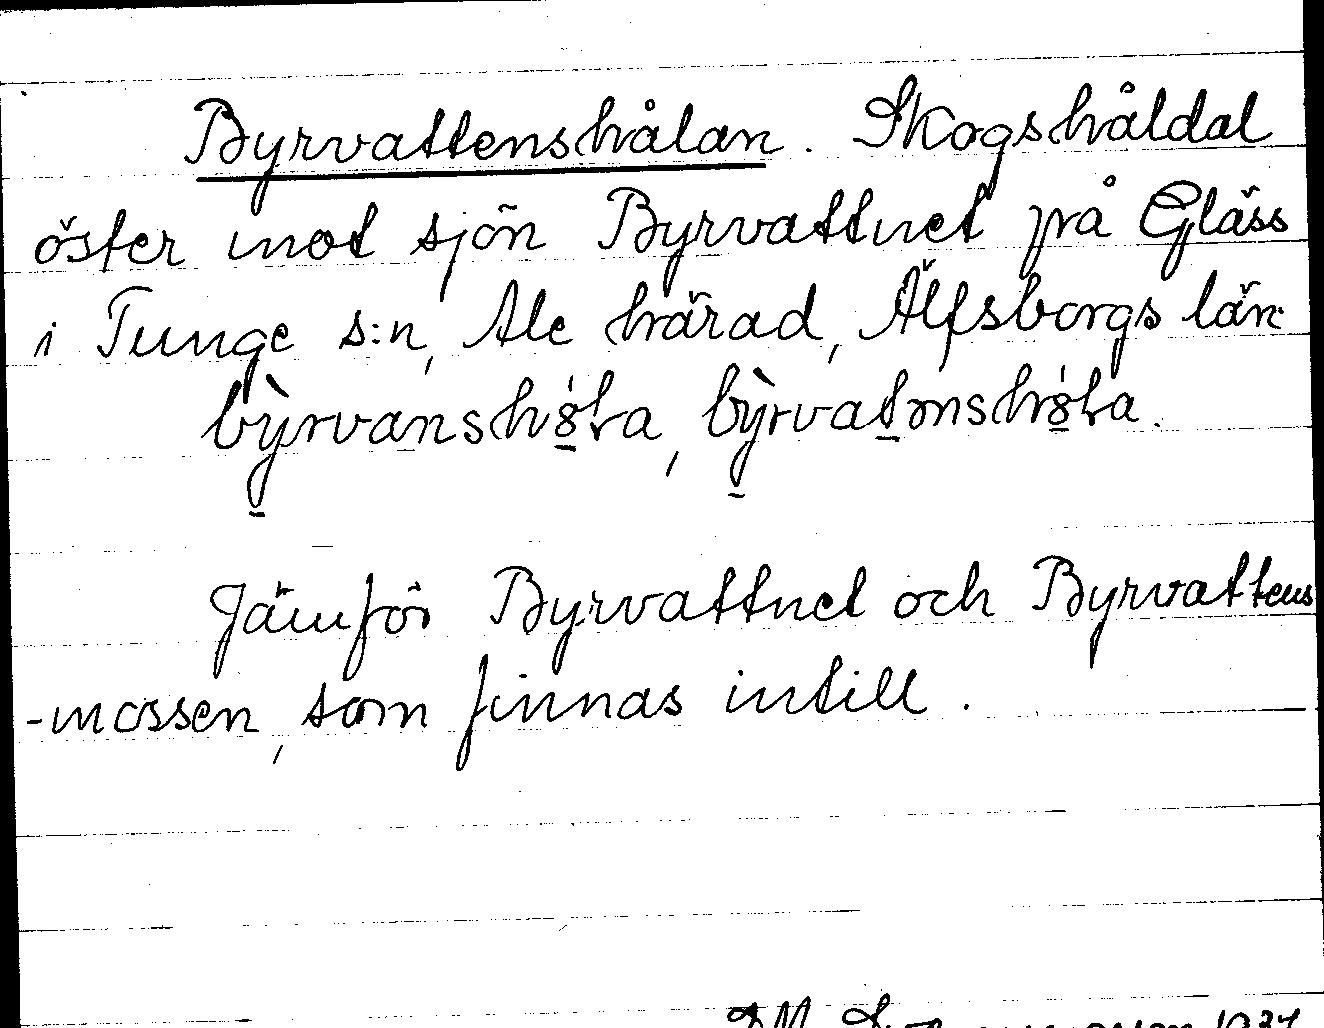 Byrvattenshålan. Skogshåldal
öster mot sjön Byrvattnet på Gläss
i Tunge s:n, Ale härad, Älfsborgs län.
Jämför Byrvattnet och Byrvattens
-mossen, som finnas intill.